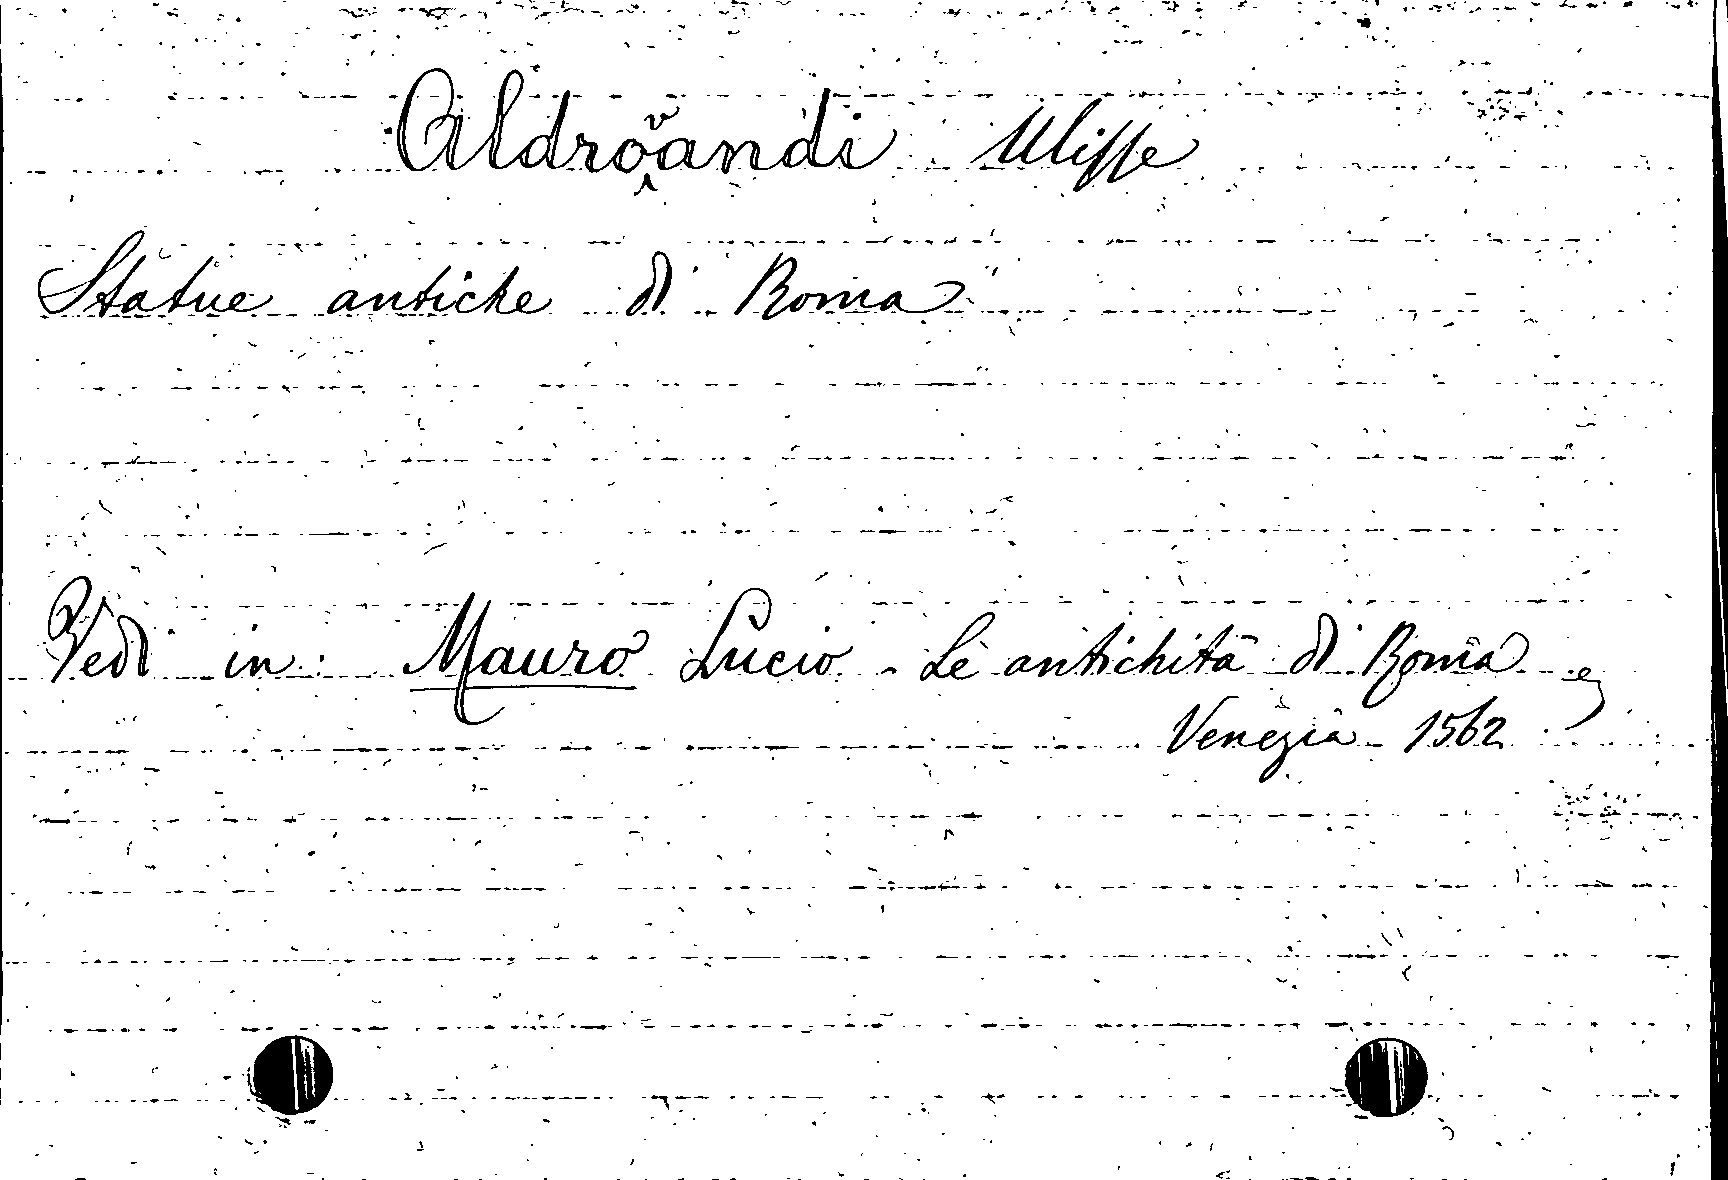 Aldrovandi Ulisse
Statue antiche di Roma
Vedi in: Mauro Lucio - Le antichità di Roma
Venezia 1562